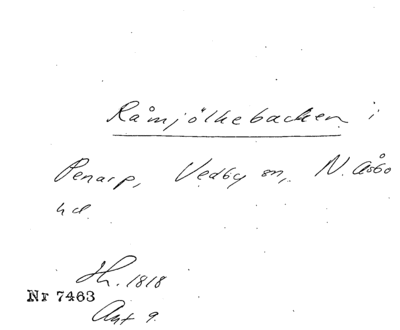 Råmjölkebacken i
Penarp, Vedby sn, N. Åsbo
hd.
H. 1818
Nr 7463
Ant 9.